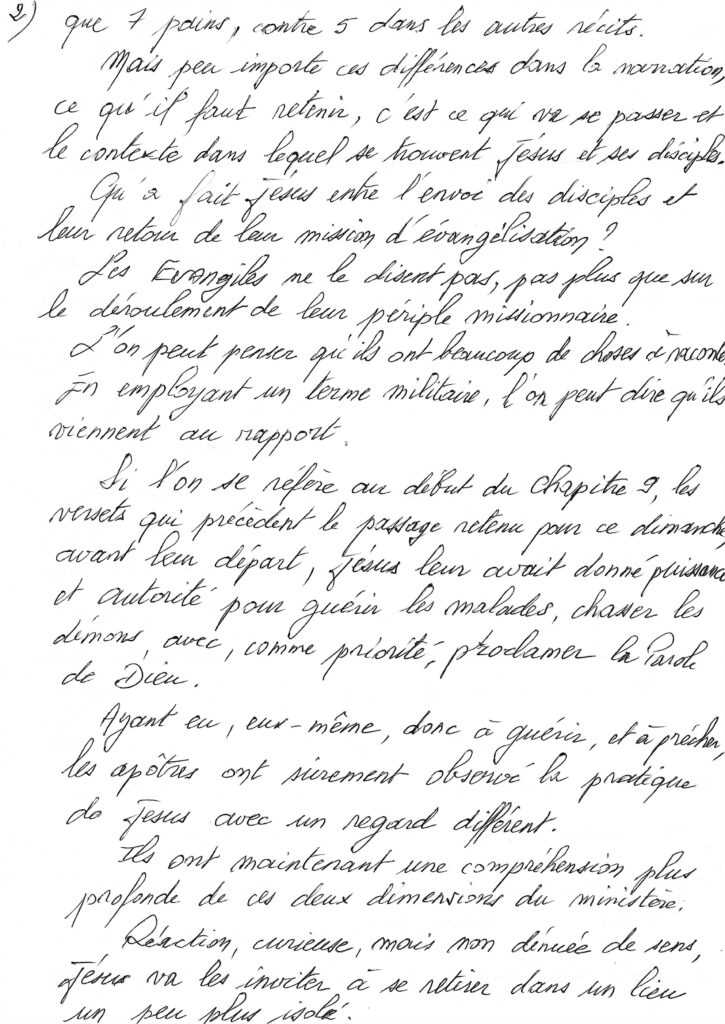 2) que 7 pains, contre 5 dans les autres récits.
Mais peu importe ces différences dans la narration,
ce qu'il faut retenir, c'est ce qui va se passer et
le contexte dans lequel se trouvent Jésus et ses disciples.
Qu'a fait Jésus entre l'envoi des disciples et
leur retour de leur mission d'évangélisation ?
Les Evangiles ne le disent pas, pas plus que sur
le déroulement de leur périple missionnaire.
L'on peut penser qu'ils ont beaucoup de choses à raconter
En employant un terme militaire, l'on peut dire qu'ils
viennent au rapport.
Si l'on se réfère au début du chapitre 9, les
versets qui précèdent le passage retenu pour ce dimanche,
avant leur départ, Jésus leur avait donné puissance
et autorité pour guérir les malades, chasser les
démons, avec, comme priorité, proclamer la Parole
de Dieu.
Ayant eu, eux-même, donc à guérir, et à prêcher,
les apôtres ont sûrement observé la pratique
de Jésus avec un regard différent.
Ils ont maintenant une compréhension plus
profonde de ces deux dimensions du ministère.
Réaction, curieuse, mais non dénuée de sens,
Jésus va les inviter à se retirer dans un lieu
un peu plus isolé.